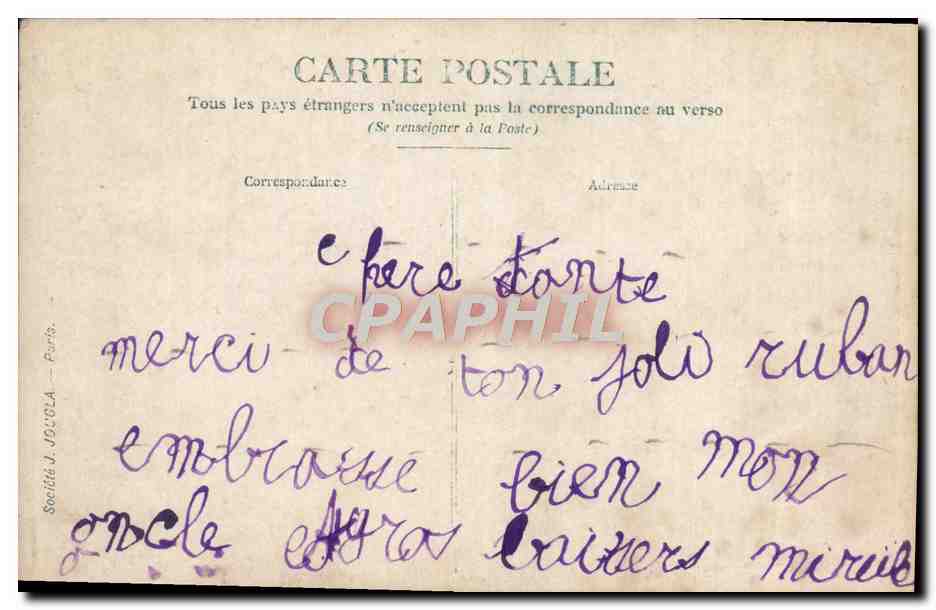 CARTE POSTALE
Tous les pays étrangers n'acceptent pas la correspondance au verso
(Se renseigner à la Poste)
Correspondance
Adresse
Société J. JOUGLA. — Paris.
chère tante
CPAPHIL
merci de ton joli ruban
embrasse bien mon
oncle et gros baisers